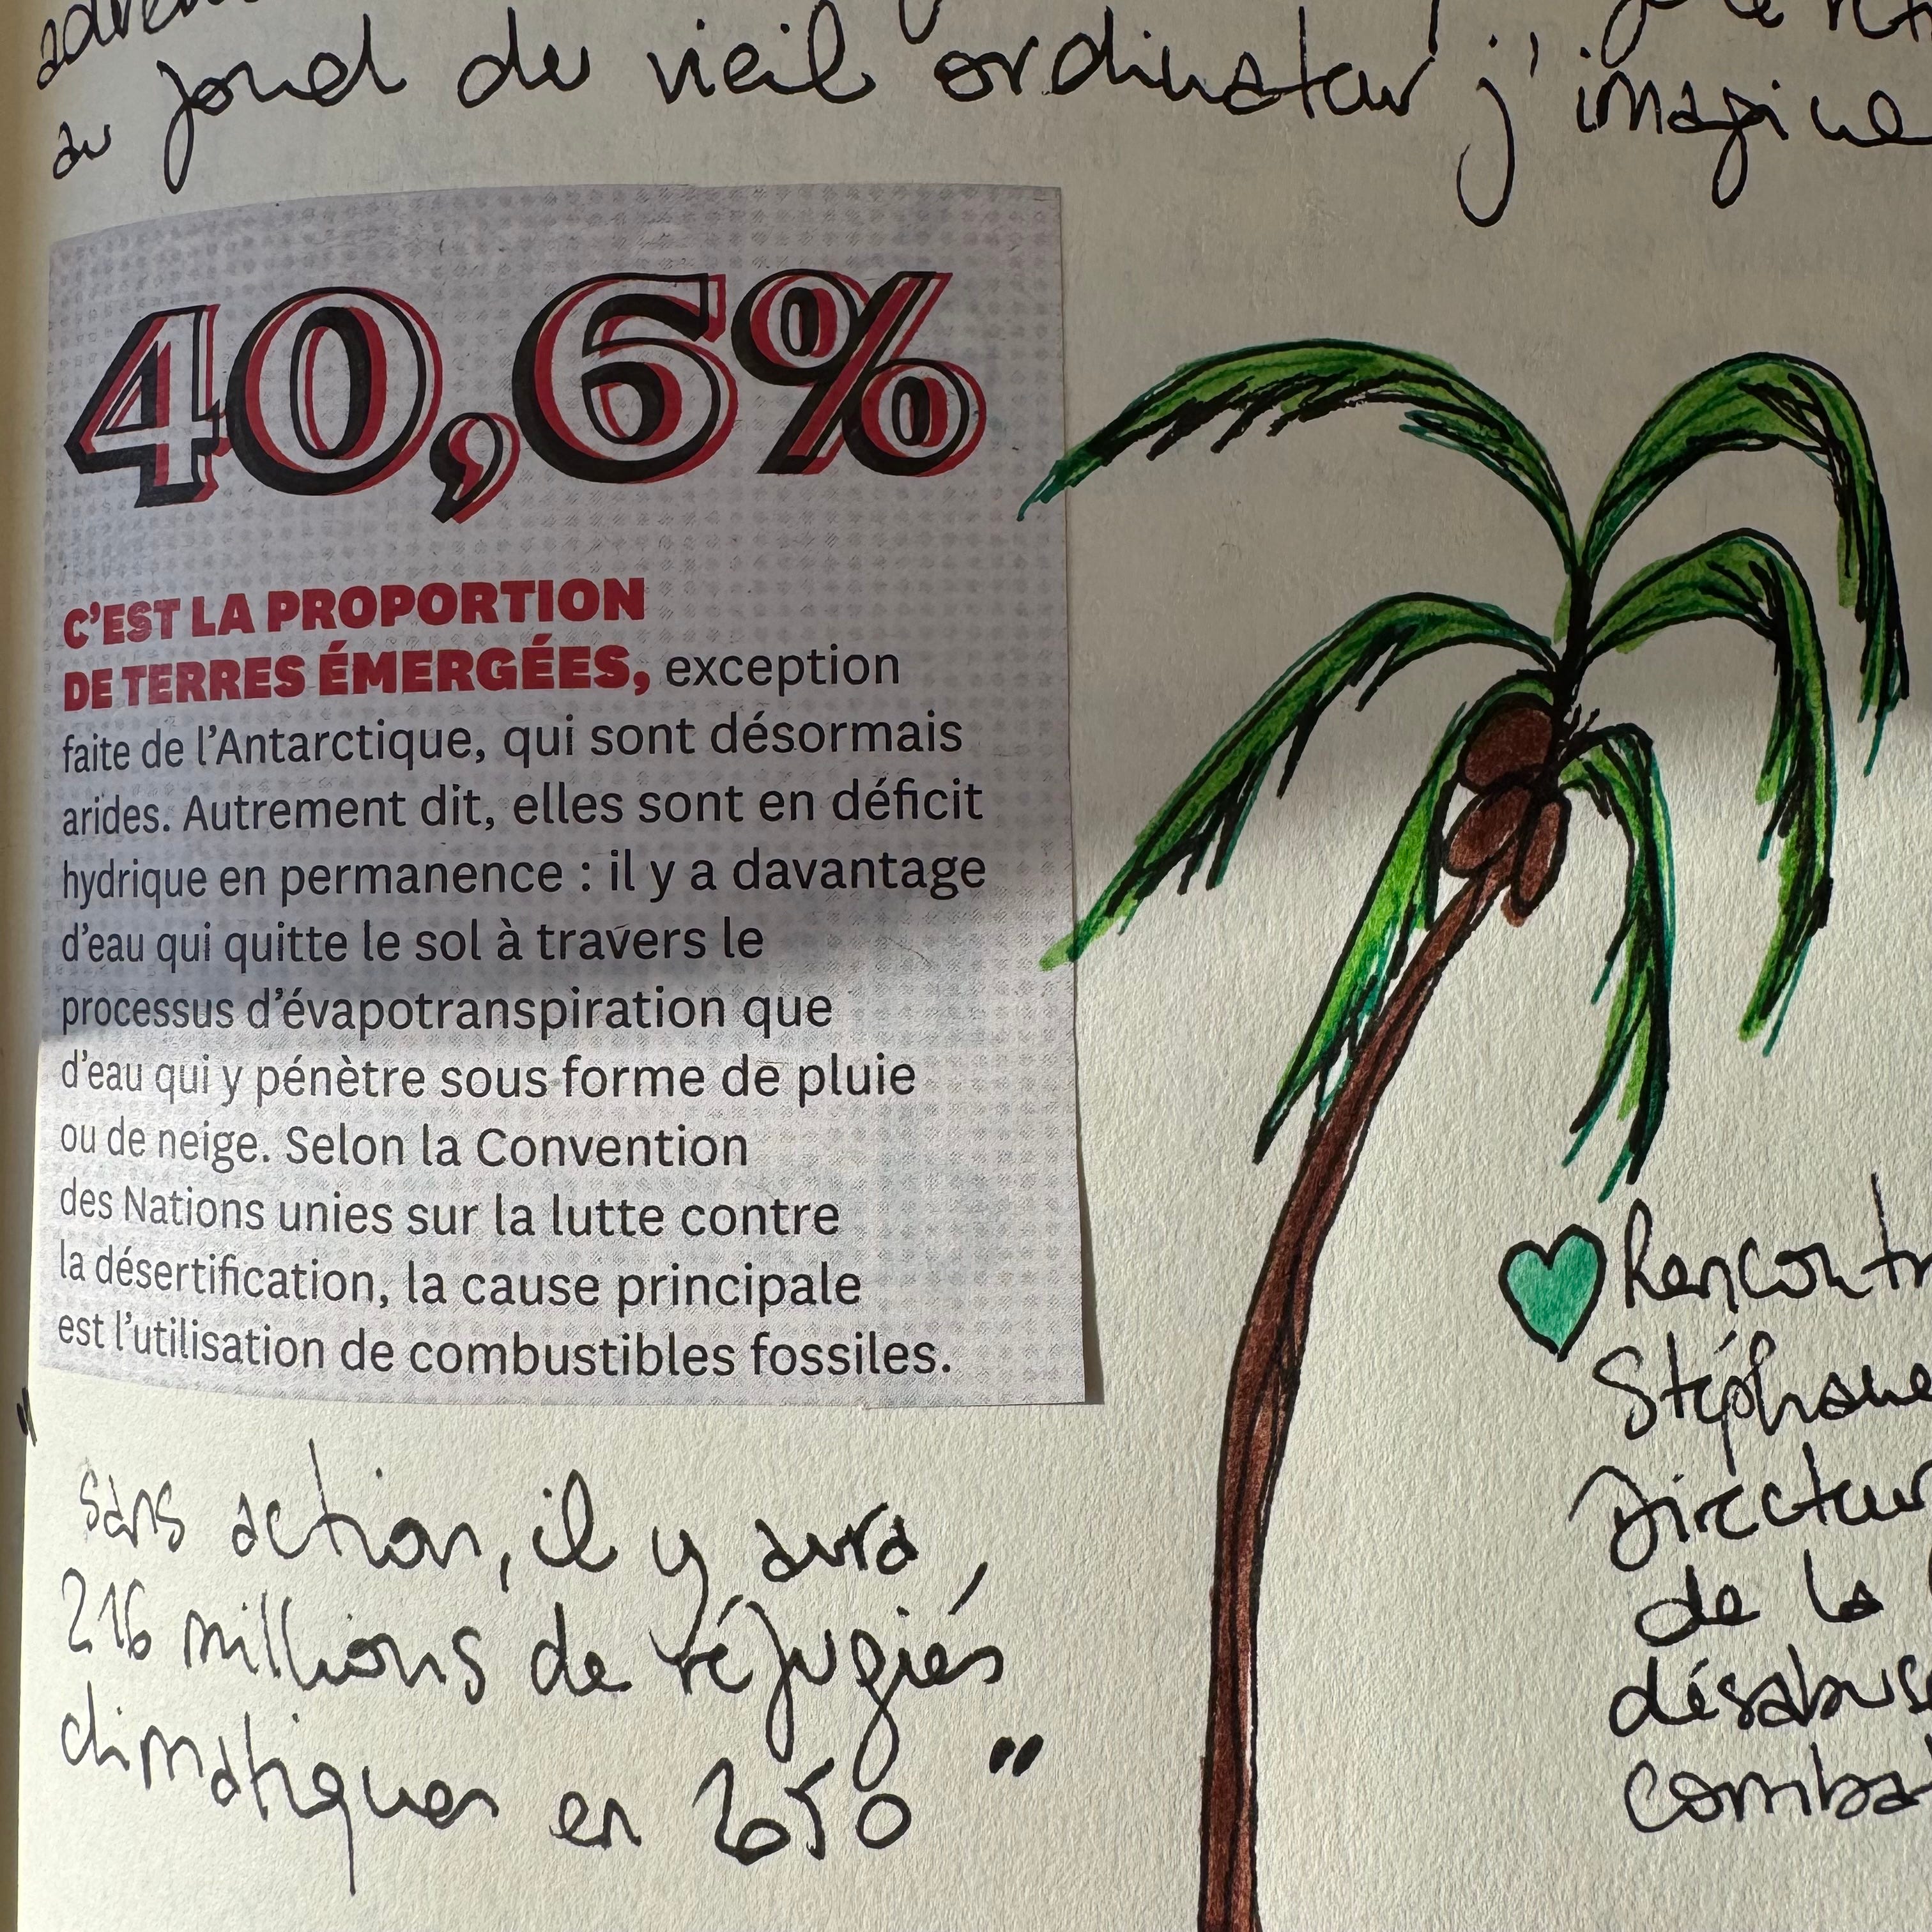 au fond du vieil ordinateur j'imagine
40,6%
C'EST LA PROPORTION
DE TERRES ÉMERGÉES, exception
faite de l'Antarctique, qui sont désormais
arides. Autrement dit, elles sont en déficit
hydrique en permanence : il y a davantage
d'eau qui quitte le sol à travers le
processus d'évapotranspiration que
d'eau qui y pénètre sous forme de pluie
ou de neige. Selon la Convention
des Nations unies sur la lutte contre
la désertification, la cause principale
est l'utilisation de combustibles fossiles.
"sans action, il y aura
216 millions de réfugiés
climatiques en 2050"
Rencontr
Stéphane
Directeur
de la
désabus
comba